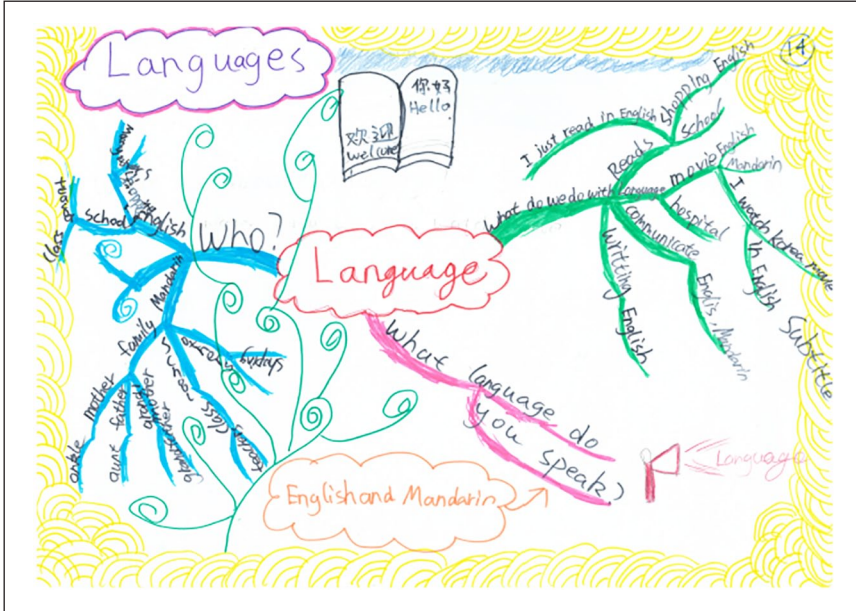 Languages
14
你好
Hello.
欢迎
welcome
Language
Who?
English
school
Class
parent
Mandarin
family
mother
father
grand
mother
grandfather
ankle
aunt
class
teachers
shoping
What do we do with Language
Reads
I just read in English
Shopping English
School
movie
English
Mandarin
I watch korea movie
in English Subtitle
hospital
communicate
Englis. Mandarin
Writting
English
What language do
you speak?
English and Mandarin
Language